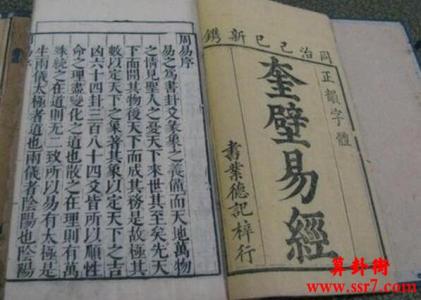 同治己巳新鐫
正韻字體
奎壁易經
書業德記梓行
周易序
易之為書卦爻彖象之義備而天地萬物
之情見聖人之憂天下來世其至矣先天
下而開其物後天下而成其務是故極其
數以定天下之象著其象以定天下之吉
凶六十四卦三百八十四爻皆所以順性
命之理盡變化之道也散之在理則有萬
殊統之在道則无二致所以易有太極是
生兩儀太極者道也兩儀者陰陽也陰陽
算卦街
www.ssr7.com